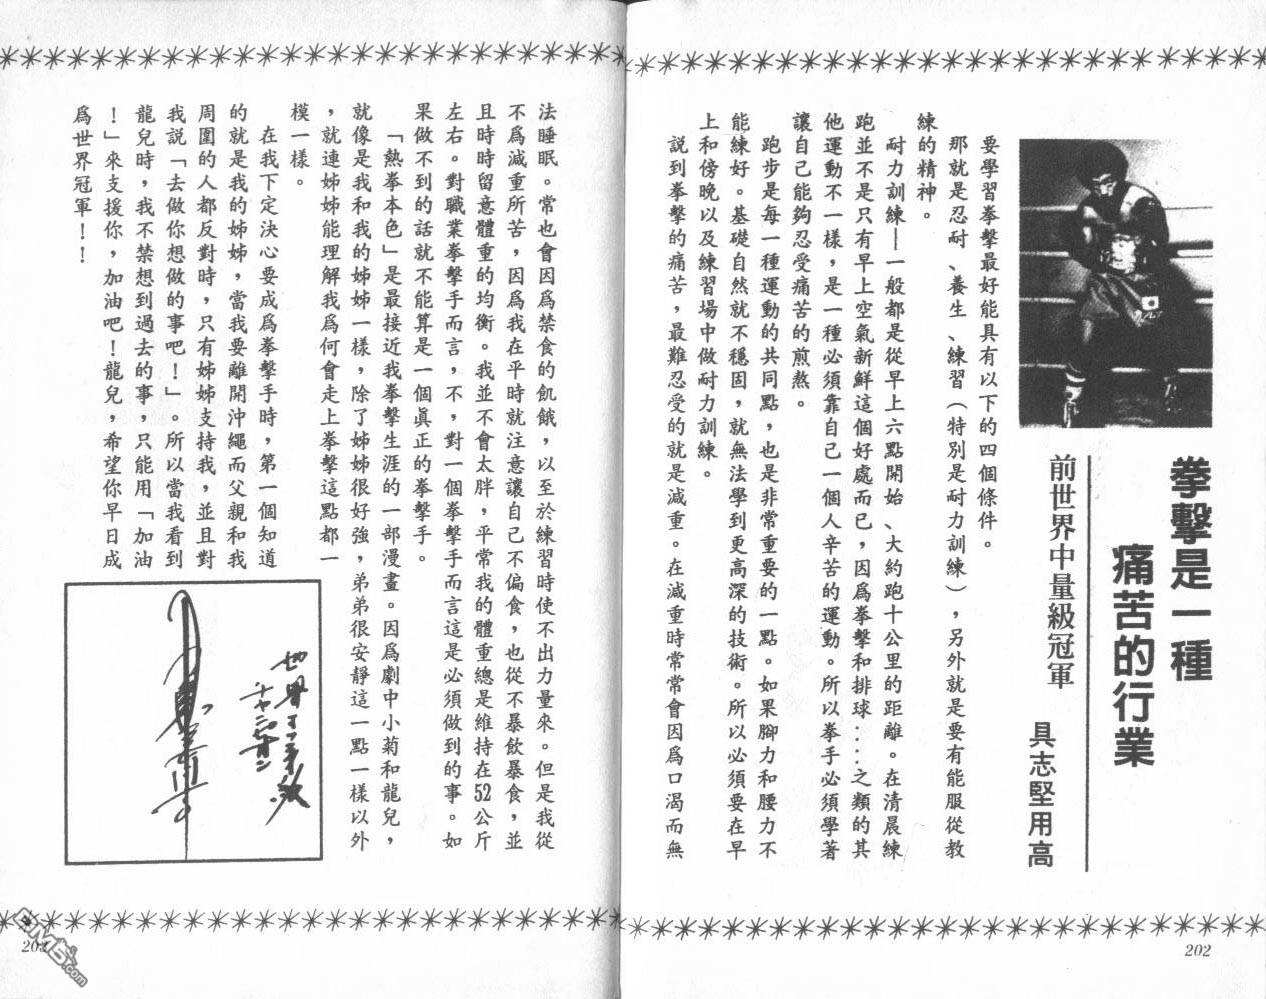 拳擊是一種
痛苦的行業
前世界中量級冠軍　具志堅用高
要學習拳擊最好能具有以下的四個條件。
那就是忍耐、養生、練習（特別是耐力訓練），另外就是要有能服從教
練的精神。
耐力訓練—一般都是從早上六點開始、大約跑十公里的距離。在清晨練
跑並不是只有早上空氣新鮮這個好處而已，因爲拳擊和排球……之類的其
他運動不一樣，是一種必須靠自己一個人辛苦的運動。所以拳手必須學著
讓自己能夠忍受痛苦的煎熬。
跑步是每一種運動的共同點，也是非常重要的一點。如果腳力和腰力不
能練好。基礎自然就不穩固，就無法學到更高深的技術。所以必須要在早
上和傍晚以及練習場中做耐力訓練。
說到拳擊的痛苦，最難忍受的就是減重。在減重時常常會因爲口渴而無
202
法睡眠。常也會因爲禁食的飢餓，以至於練習時使不出力量來。但是我從
不爲減重所苦，因爲我在平時就注意讓自己不偏食，也從不暴飲暴食，並
且時時留意體重的均衡。我並不會太胖，平常我的體重總是維持在52公斤
左右。對職業拳擊手而言，不，對一個拳擊手而言這是必須做到的事。如
果做不到的話就不能算是一個眞正的拳擊手。
「熱拳本色」是最接近我拳擊生涯的一部漫畫。因爲劇中小菊和龍兒，
就像是我和我的姊姊一樣，除了姊姊很好強，弟弟很安靜這一點一樣以外
，就連姊姊能理解我爲何會走上拳擊這點都一
模一樣。
在我下定決心要成爲拳擊手時，第一個知道
的就是我的姊姊，當我要離開沖繩而父親和我
周圍的人都反對時，只有姊姊支持我，並且對
我說「去做你想做的事吧！」。所以當我看到
龍兒時，我不禁想到過去的事，只能用「加油
！」來支援你，加油吧！龍兒，希望你早日成
爲世界冠軍！！
203